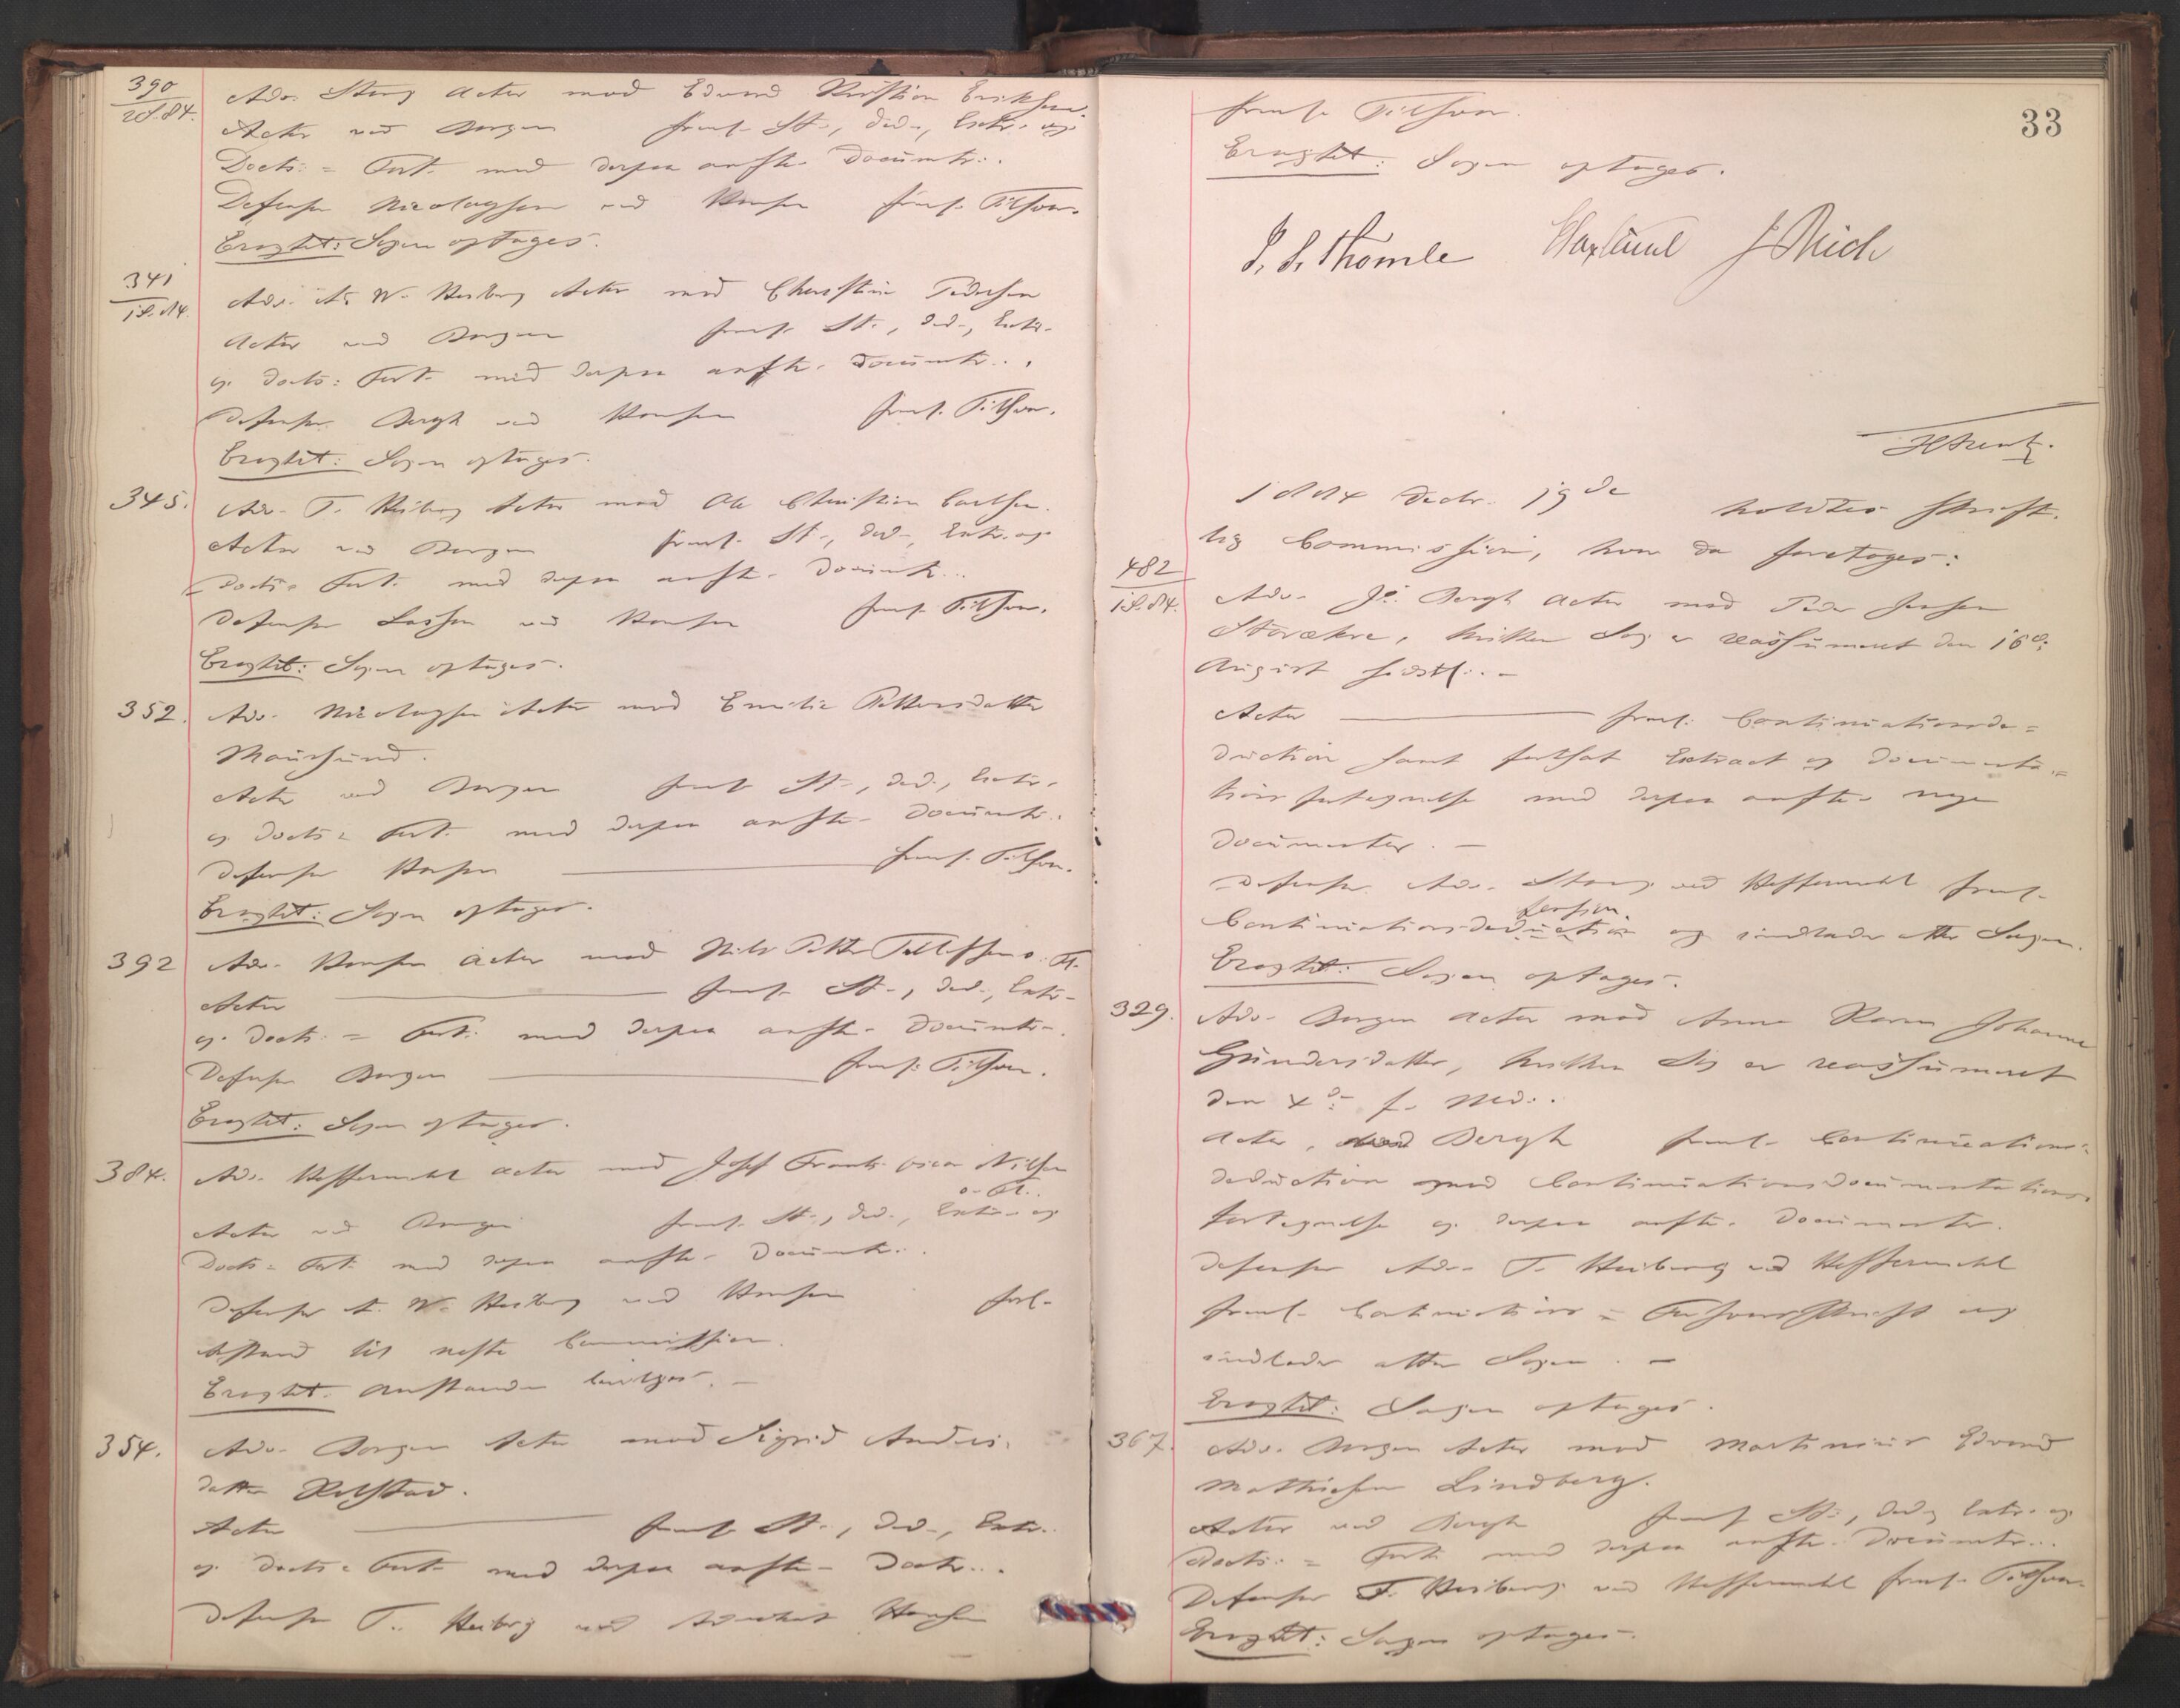 390
2 S. 84.
Adv. Stang Actor mod Edvard Kristian Eriksen.
Actor ved Borgen freml. St., Ded., Extr. og
Docts: = Fort. med derpaa anfte. Documtr..
Defensor Nicolaysen ved Hansen freml. Tilsvar.
Eragtet: Sagen optages.
341
1 S. 84.
Adv. A. W. Heiberg Actor mod Christine Pedersen
Actor ved Borgen freml. St., Ded., Extr.
og Docts: Fort. med derpaa anfte. Documtr..
Defensor Bergh ved Hansen freml. Tilsvar.
Eragtet: Sagen optages.
345.
Adv. T. Heiberg Actor mod Ole Christian Carlsen.
Actor ved Borgen freml. St., Ded., Extr. og
Docts = Fort. med derpaa anfte. Documtr..
Defensor Lassen ved Hansen freml. Tilsvar.
Eragtet: Sagen optages.
352.
Adv. Nicolaysen Actor mod Emilie Pettersdatter
Maursund.
Actor ved Borgen freml. St., Ded., Extr.
og Docts = Fort. med derpaa anfte. Documtr..
Defensor Hansen freml. Tilsvar.
Eragtet: Sagen optages.
392
Adv. Hansen Actor mod Nils Petter Tellefsen o. Fl.
Actor freml. St., Ded., Extr.
og Docts: = Fort. med derpaa anfte. Documtr..
Defensor Borgen freml. Tilsvar.
Eragtet: Sagen optages.
384.
Adv. Heffermehl Actor mod Josef Frantz Oscar Nilsen
o. Fl..
Actor ved Borgen freml. St., Ded., Extr. og
Docts = Fort. med derpaa anfte. Documtr..
Defensor A. W. Heiberg ved Hansen forl.
Anstand til næste Commission.
Eragtet: Anstanden bevilges.
354.
Adv. Borgen Actor mod Sigrid Anders-
datter Rolstad.
Actor freml. St., Ded., Extr.
og Docts = Fort. med derpaa anfte. Doctr..
Defensor T. Heiberg ved Advokat Hansen
33
freml. Tilsvar.
Eragtet: Sagen optages.
P. S. Thomle J Rich
1884 Decbr. 19de holdtes skrift-
lig Commission, hvor da foretoges:
482
1 S. 84.
Adv. Jo. Bergh Actor mod Peder Jensen
Storækre, hvilken Sag er reassumeret den 16de
August sidstl..
Actor freml. Continuationsde-
duction samt fortsat Extract og Documenta-
tionsfortegnelse med derpaa anfte. nye
Documenter.
Defensor Adv. Stang ved Heffermehl freml.
Continuationsdeduction og indlader atter Sagen.
Eragtet: Sagen optages.
329.
Adv. Borgen Actor mod Anne Karen Johanne
Gundersdatter, hvilken Sag er reassumeret
den 4de f. Md..
Actor, ved Bergh freml. Continuations-
deduction med Continuationsdocumentations-
fortegnelse og derpaa anfte. Documenter.
Defensor Adv. T. Heiberg ved Heffermehl
freml. Continuations = Forsvarsskrift og
indlader atter Sagen.
Eragtet: Sagen optages.
367.
Adv. Borgen Actor mod Martinius Edvard
Mathiesen Lindberg.
Actor ved Bergh freml. St., Ded., Extr. og
Docts: = Fort. med derpaa anfte. Documtr..
Defensor T. Heiberg ved Heffermehl freml. Tilsvar.
Eragtet: Sagen optages.